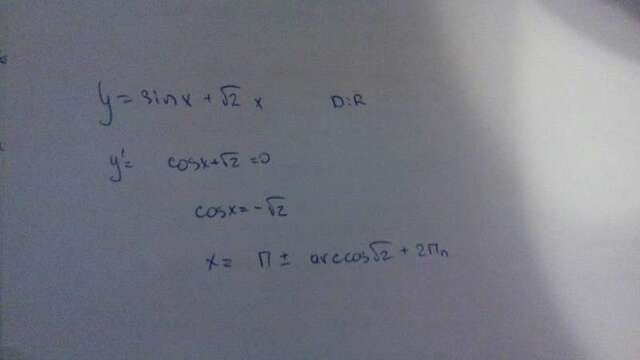 y = sinx + √2 x D:R
y' = cosx+√2 =0
cosx = -√2
x = П ± arccos√2 + 2Пn